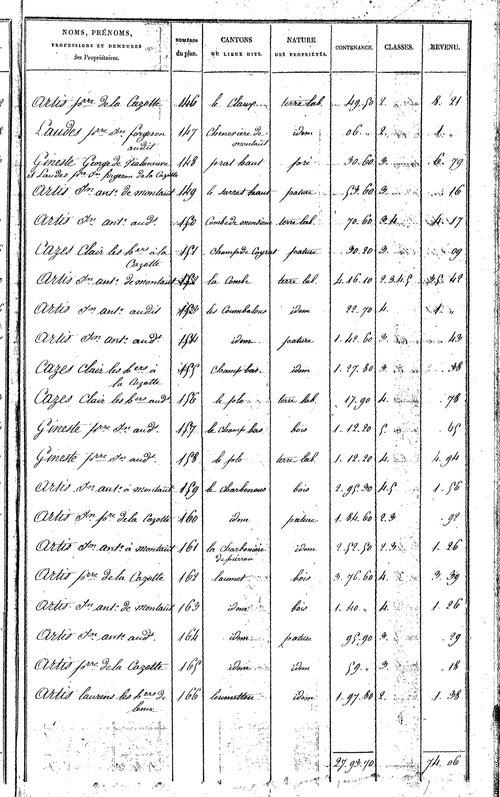 NOMS, PRÉNOMS, PROFESSIONS ET DEMEURES des Propriétaires. NUMÉROS du plan. CANTONS OU LIEUX DITS. NATURE DES PROPRIÉTÉS. CONTENANCE. CLASSES. REVENU.
Artis pre de la Cazotte 146 le Claup terre lab. 49.50 2. 8. 21
Laudes pre jn forgeron audit 147 Cheneviere de montaut idem 06. „ 2. 1. „
Gineste George de et Laudes pre jn forgeron de la Cazotte 148 prat haut pré 30.60 3. 6. 79
Artis jn ant. de montaut 149 le sarrat haut pature 53.60 3. 16
Artis jn ant. aud. 150 Combe de monsieur terre lab. 70.60 3.4. 4. 17
Cazes Clair les hers à la Cazotte 151 Champ de pature 30.20 3. 09
Artis jn ant. de montaut 152 la Combe terre lab. 4.16.10 2.3.4.5 35. 42
Artis jn ant. audit 153 les Coumbalous idem 22.70 4. 1. „
Artis jn ant. aud. 154 idem pature 1.42.60 3. 43
Cazes Clair les hers à la Cazotte 155 Champ bas idem 1.27.80 3. 38
Cazes Clair les hers aud. 156 le solo terre lab. 17.90 4. 78
Gineste pre jn aud. 157 le Champ bas bois 1.12.20 5. 45
Gineste pre jn aud. 158 le solo terre lab. 1.12.20 4. 4.94
Artis jn ant. à montaut 159 le Charbonous bois 2.95.30 4.5 1.56
Artis jn pre de la Cazotte 160 idem pature 1.84.60 2.3 92
Artis jn ant. à montaut 161 la Charboniere de pierrou idem 2.52.50 2.3 1.26
Artis pre de la Cazotte 162 laumet bois 3.76.60 4. 3.39
Artis jn ant. de montaut 163 idem bois 1.40. „ 4. 1.26
Artis jn ant. aud. 164 idem pature 95.90 3. 29
Artis pre de la Cazotte 165 idem idem 59. „ 3. 18
Artis laurens les hers de 166 loumettere idem 1.97.80 2. 1.38
27.93.70 74.06